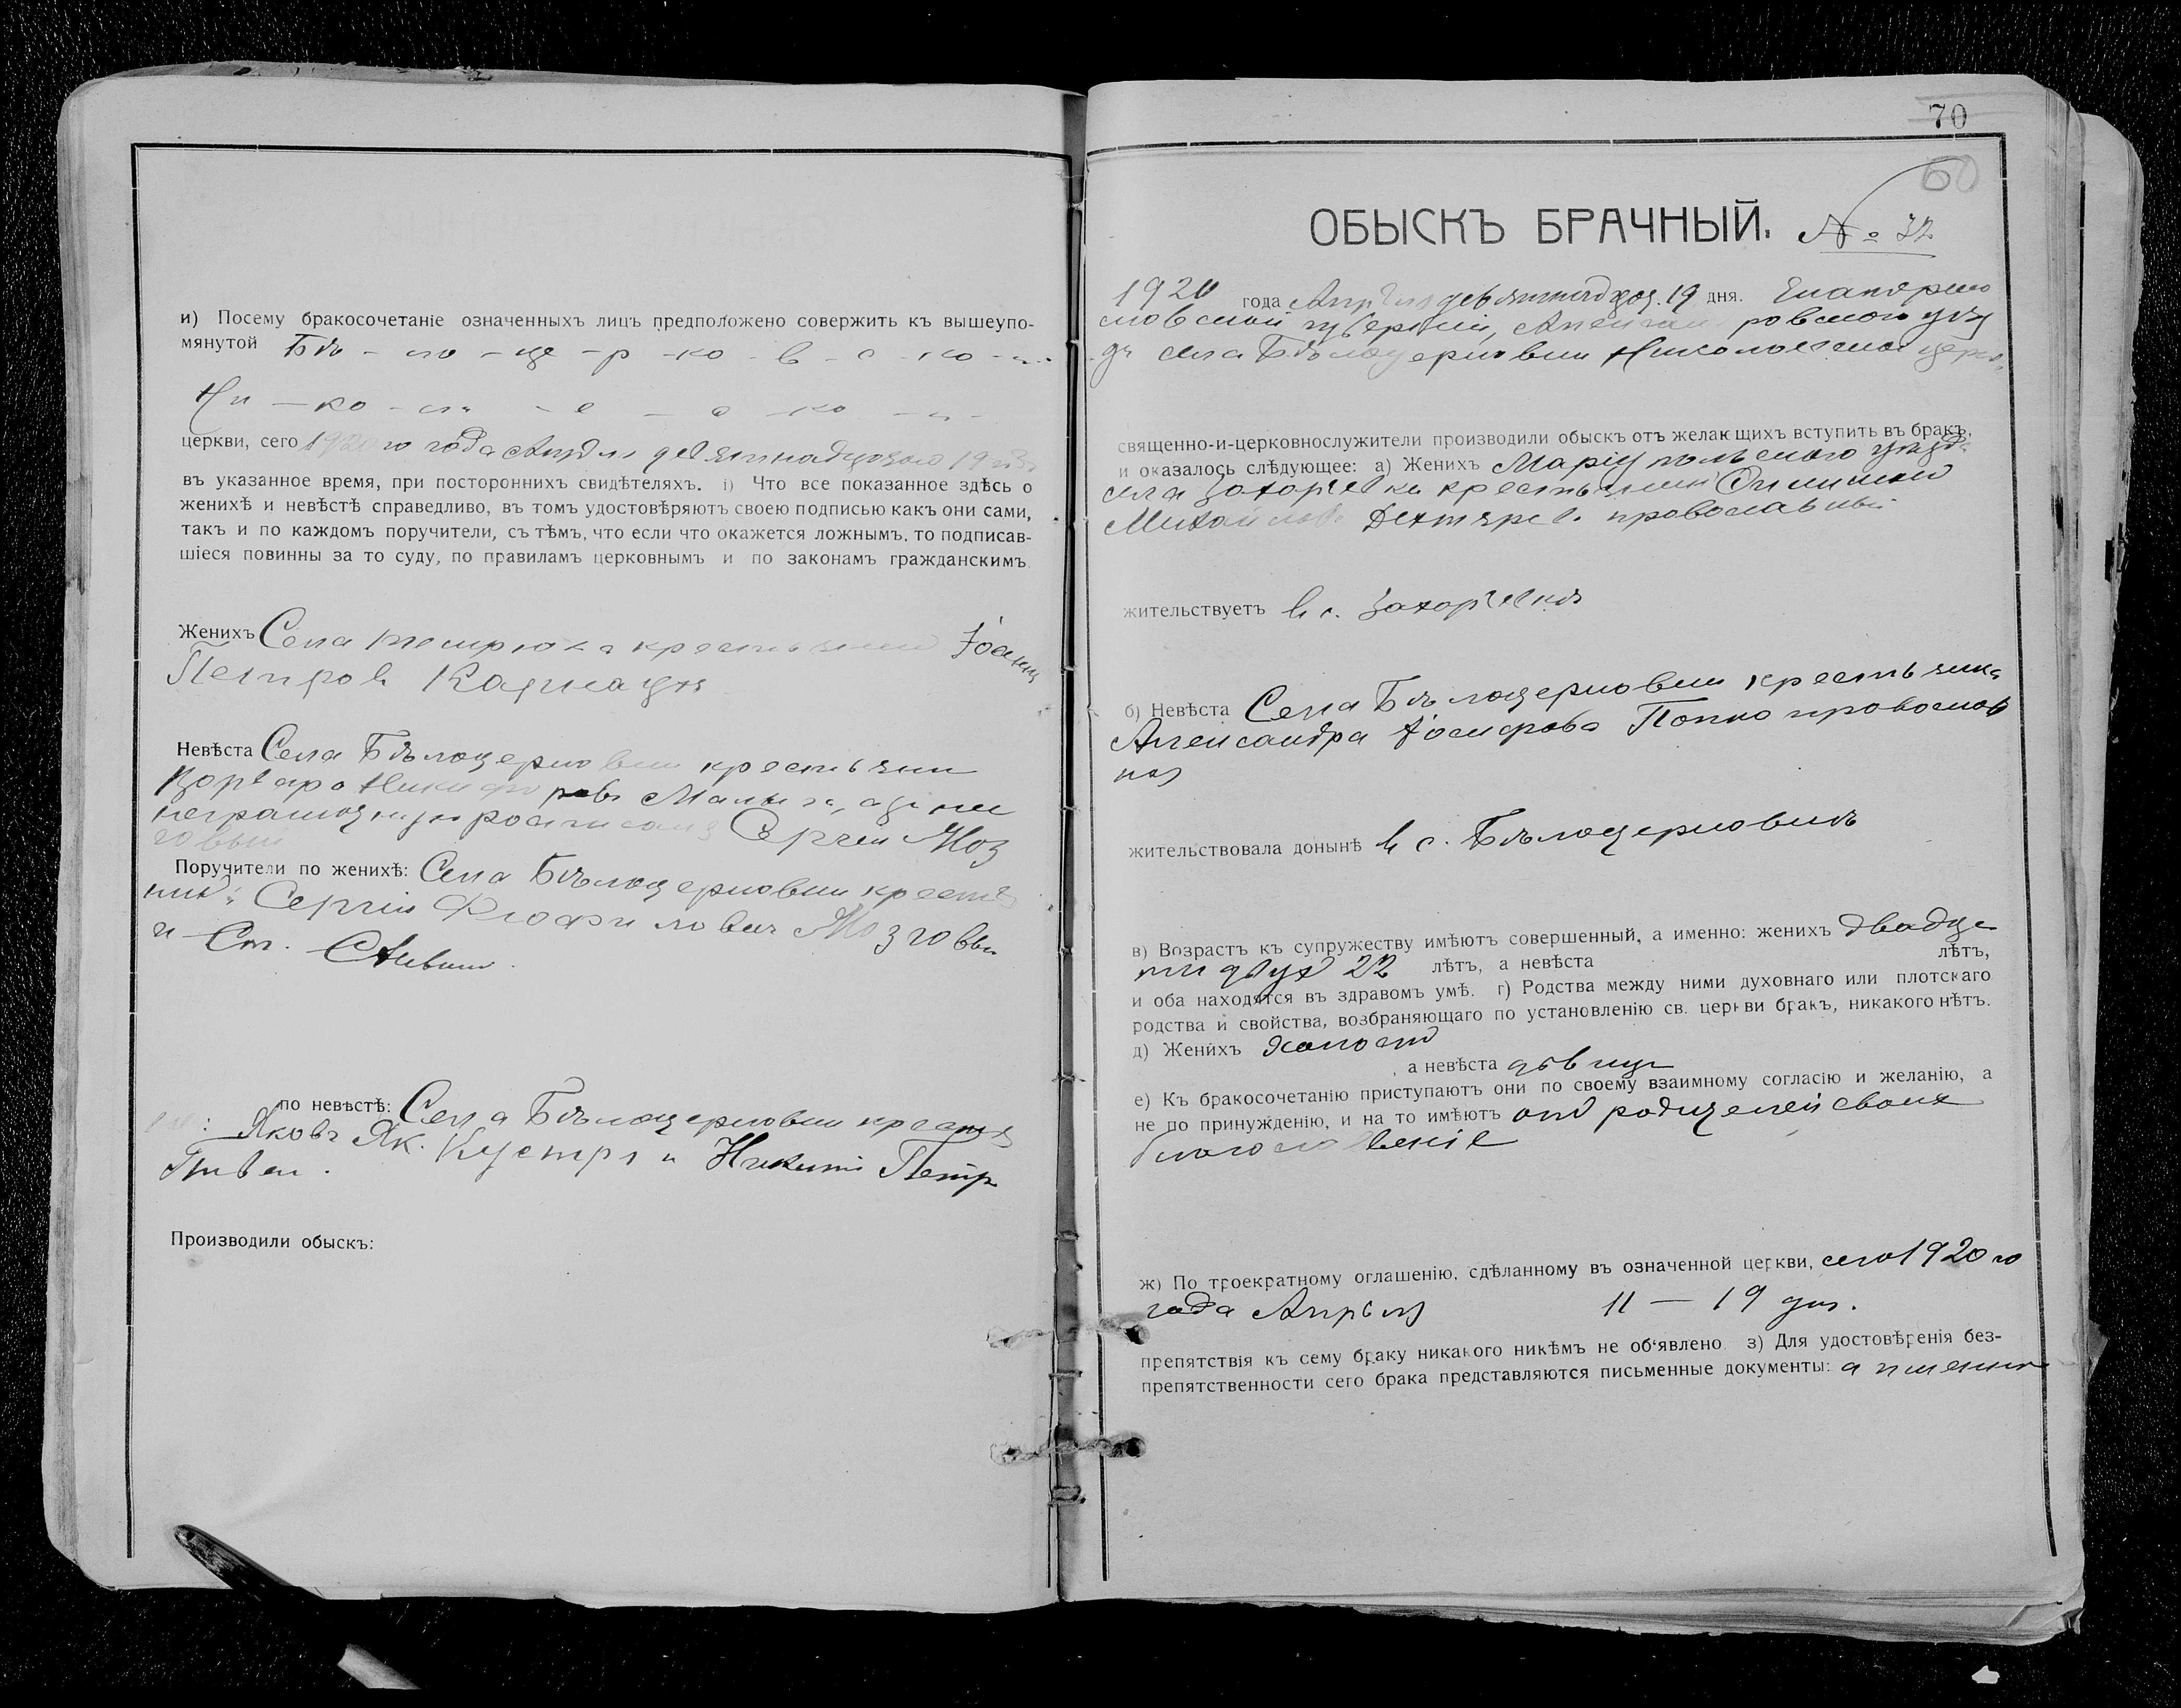 и) Посему бракосочетаніе означенныхъ лицъ предположено совержить къ вышеупо-
мянутой Бѣ - ло - це - р - ко - в - с - ко - й
Ни - ко - ла - е - с - ко - й -
церкви, сего 1920 го года Апрѣля девятнадцатого 19
въ указанное время, при постороннихъ свидѣтеляхъ. i) Что все показанное здѣсь о
женихѣ и невѣстѣ справедливо, въ томъ удостовѣряютъ своею подписью какъ они сами,
такъ и по каждомъ поручители, съ тѣмъ, что если что окажется ложнымъ, то подписав-
шіеся повинны за то суду, по правиламъ церковнымъ и по законамъ гражданскимъ
Женихъ Села крестьянин Іоанн
Петров
Невѣста Села Бѣлоцерковки крестьянк
неграмотную росписался Сергей Моз
говый
Поручители по женихѣ: Села Бѣлоцерковки крестя
Сергій Мозговый
и Ст.
по невѣстѣ: Села Бѣлоцерковки крестя
Яковъ Як. и Никита Петр
Производили обыскъ:
70
60
ОБЫСКЪ БРАЧНЫЙ. № 32
1920 года Апрѣля девятнадцат. 19 дня. Екатерино
славской губерніи, Александровского уѣз
да села Бѣлоцерковки Николаевской церк.
священно-и-церковнослужители производили обыскъ отъ желающихъ вступить въ бракъ,
и оказалось слѣдующее: а) Женихъ Маріупольского уѣзда
села Захарьевки крестьянин
Михайлов Дехтярев православный
жительствуетъ в с. Захарьевкѣ
б) Невѣста Села Бѣлоцерковки крестьянка
Александра Іосифова Попко православ
ная
жительствовала донынѣ в с. Бѣлоцерковкѣ
в) Возрастъ къ супружеству имѣютъ совершенный, а именно: женихъ двадца
ти двух 22 лѣтъ, а невѣста лѣтъ,
и оба находятся въ здравомъ умѣ. г) Родства между ними духовнаго или плотскаго
родства и свойства, возбраняющаго по установленію св. церкви бракъ, никакого нѣтъ.
д) Женихъ холост
, а невѣста дѣвица
е) Къ бракосочетанію приступаютъ они по своему взаимному согласію и желанію, а
не по принужденію, и на то имѣютъ от родителей своих
благословеніе
ж) По троекратному оглашенію, сдѣланному въ означенной церкви, сего 1920 го
года Апрѣля 11 — 19 дня.
препятствія къ сему браку никакого никѣмъ не об‘явлено з) Для удостовѣренія без-
препятственности сего брака представляются письменные документы: а именно